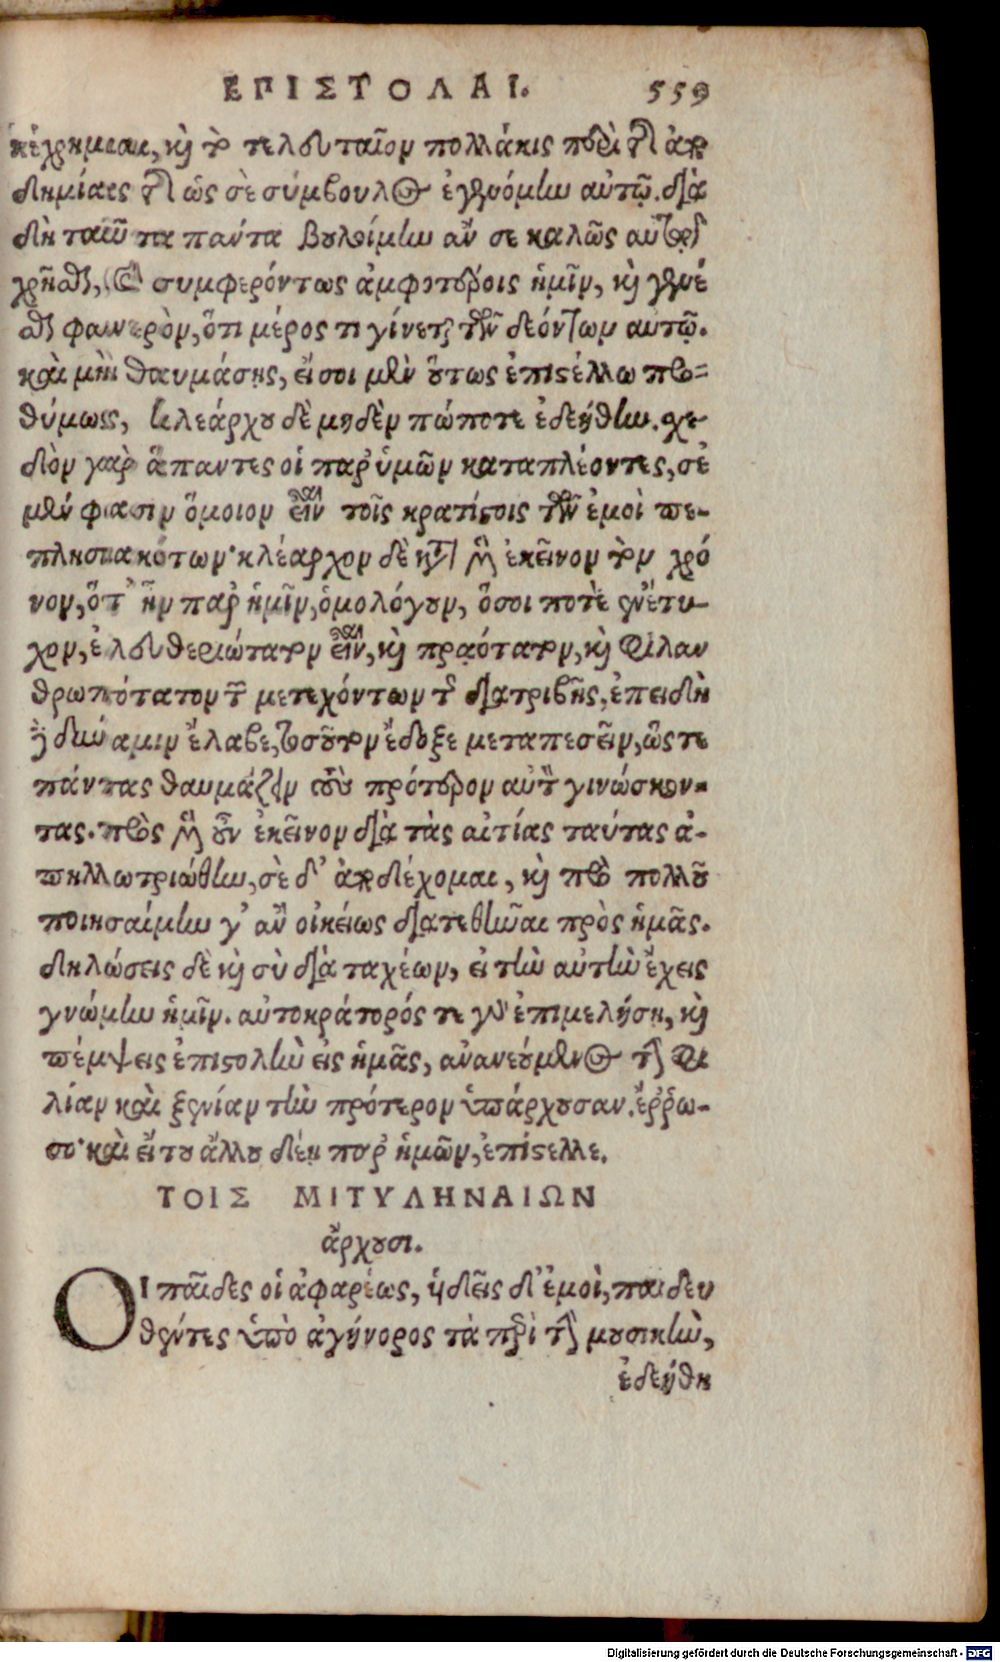 ΕΠΙΣΤΟΛΑΙ. 559
κέχρημαι, καὶ τὸ τελευταῖον πολλάκις περὶ τῆς ἀκα
δημίας τῆς ὡς σὲ σύμβουλος ἐγενόμην αὐτῷ. διὰ
δὴ ταῦτα πάντα βουλοίμην ἄν σε καλῶς αὐτοῖς
χρῆσθαι, καὶ συμφερόντως ἀμφοτέροις ἡμῖν, καὶ γενέ
σθαι φανερὸν, ὅτι μέρος τι γίνεται τῶν δεόντων αυτῷ.
καὶ μὴ θαυμάσῃς, εἴ σοι μὲν οὕτως ἐπιστέλλω προ-
θύμως, κλεάρχου δὲ μηδὲν πώποτε ἐδεήθην. σχε
δὸν γὰρ ἅπαντες οἱ παρ' ὑμῶν καταπλέοντες, σὲ
μὲν φασὶν ὅμοιον εἶναι τοῖς κρατίστοις τῶν ἐμοὶ πε-
πλησιακότων· κλέαρχον δὲ κατὰ μὲν ἐκεῖνον τὸν χρό
νον, ὅτ' ἦν παρ' ἡμῖν, ὁμολόγουν, ὅσοι ποτὲ ἐνέτυ-
χον, ἐλευθεριώτατον εἶναι, καὶ πραότατον, καὶ φιλαν
θρωπότατον τῶν μετεχόντων τῆς διατριβῆς, ἐπειδὴ
δὲ δύναμιν ἔλαβε, τοσοῦτον ἔδοξε μεταπεσεῖν, ὥστε
πάντας θαυμάζειν τοὺς πρότερον αὐτὸν γινώσκον-
τας. πρὸς μὲν οὖν ἐκεῖνον διὰ τὰς αἰτίας ταύτας ἀ-
πηλλωτριώθην, σὲ δ' ἀποδέχομαι, καὶ πρὸ πολλοῦ
ποιησαίμην γ' ἂν οἰκείως διατεθῆναι πρὸς ἡμᾶς.
δηλώσεις δὲ καὶ σὺ διὰ ταχέων, εἰ τὴν αὐτὴν ἔχεις
γνώμην ἡμῖν. αὐτοκράτορός τε γὰρ ἐπιμελήσῃ, καὶ
πέμψεις ἐπιστολὴν εἰς ἡμᾶς, ἀνανεούμενος τὴν φι
λίαν καὶ ξενίαν τὴν πρότερον ὑπάρχουσαν. ἔρρω-
σο· καὶ εἴ του ἄλλου δέῃ παρ' ἡμῶν, ἐπίστελλε.
ΤΟΙΣ ΜΙΤΥΛΗΝΑΙΩΝ
ἄρχουσι.
ΟΙ παῖδες οἱ ἀφαρέως, ὑιδεῖς δ' ἐμοὶ, παιδευ
θέντες ὑπὸ ἀγήνορος τὰ περὶ τὴν μουσικὴν,
ἐδεήθη
Digitalisierung gefördert durch die Deutsche Forschungsgemeinschaft - DFG